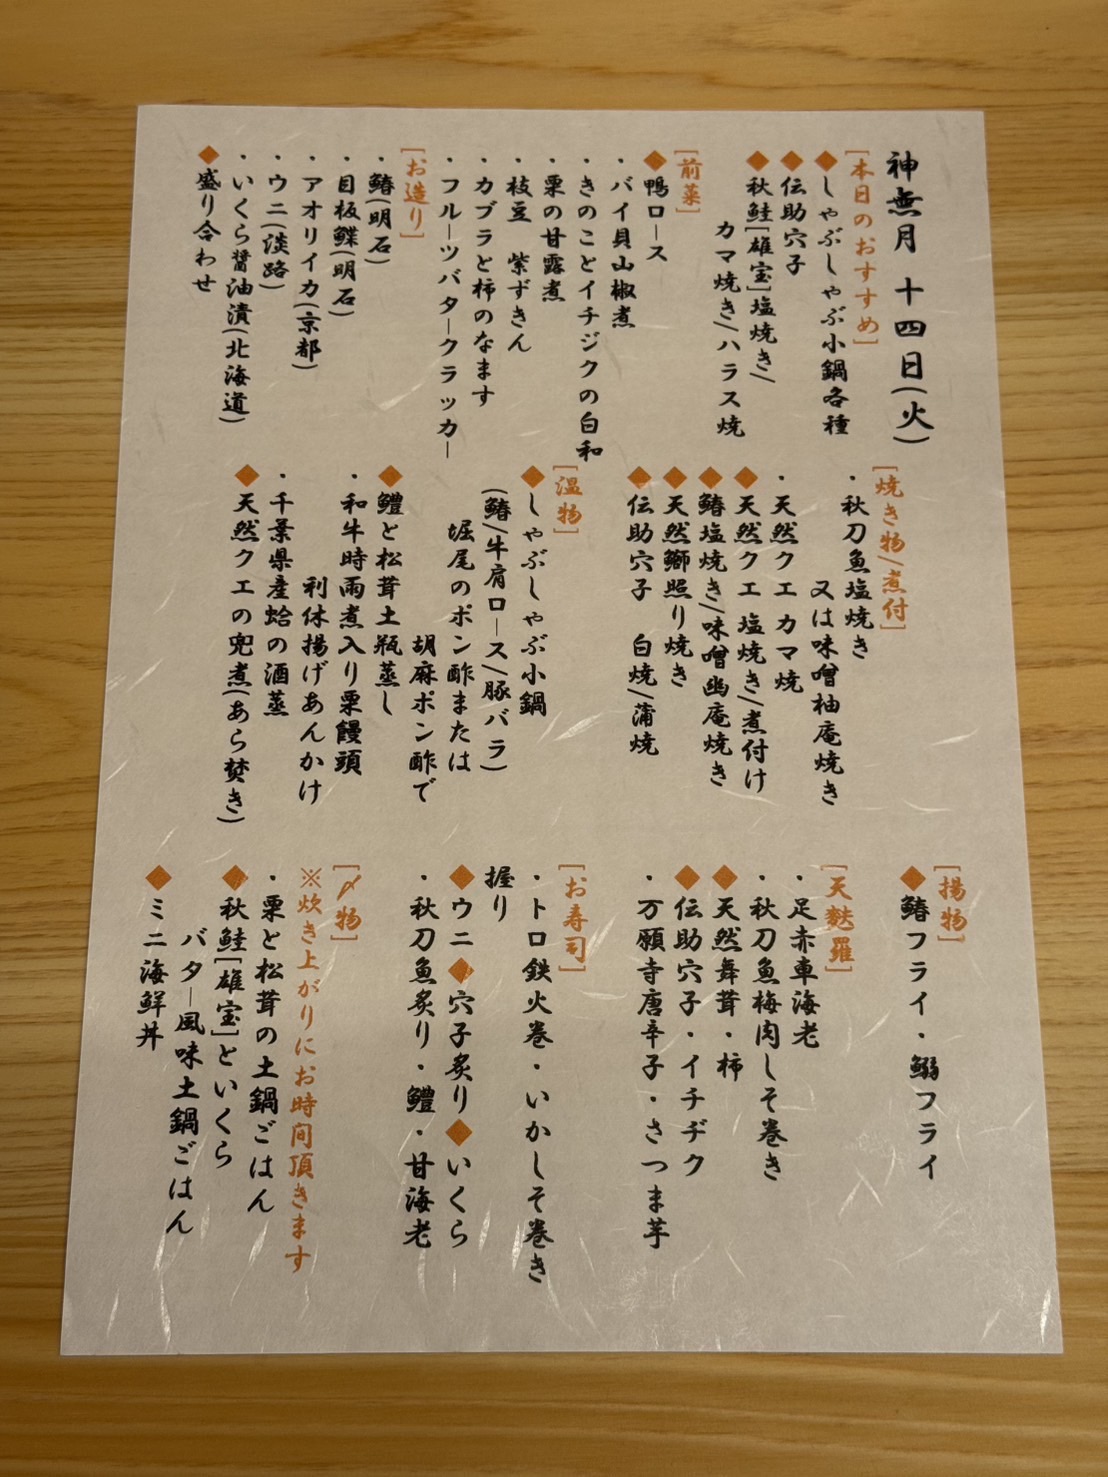 神無月 十四日(火)
[本日のおすすめ]
◆しゃぶしゃぶ小鍋各種
◆伝助穴子
◆秋鮭[雄宝]塩焼き/
カマ焼き/ハラス焼
[前菜]
◆鴨ロース
・バイ貝山椒煮
・きのことイチジクの白和
・栗の甘露煮
・枝豆 紫ずきん
・カブラと柿のなます
・フルーツバタークラッカー
[お造り]
・鰆(明石)
・目板鰈(明石)
・アオリイカ(京都)
・ウニ(淡路)
・いくら醤油漬(北海道)
◆盛り合わせ
[焼き物/煮付]
・秋刀魚塩焼き
又は味噌柚庵焼き
・天然クエ カマ焼
◆天然クエ 塩焼き/煮付け
◆鰆塩焼き/味噌幽庵焼き
◆天然鰤照り焼き
◆伝助穴子 白焼/蒲焼
[温物]
◆しゃぶしゃぶ小鍋
(鰆/牛肩ロース/豚バラ)
堀尾のポン酢または
胡麻ポン酢で
◆鱧と松茸土瓶蒸し
・和牛時雨煮入り栗饅頭
利休揚げあんかけ
・千葉県産蛤の酒蒸
◆天然クエの兜煮(あら焚き)
[揚物]
◆鰆フライ・鰯フライ
[天麩羅]
・足赤車海老
・秋刀魚梅肉しそ巻き
◆天然舞茸・柿
◆伝助穴子・イチヂク
・万願寺唐辛子・さつま芋
[お寿司]
・トロ鉄火巻・いかしそ巻き
握り
◆ウニ◆穴子炙り◆いくら
・秋刀魚炙り・鱧・甘海老
[〆物]
※炊き上がりにお時間頂きます
・栗と松茸の土鍋ごはん
◆秋鮭[雄宝]といくら
バター風味土鍋ごはん
◆ミニ海鮮丼